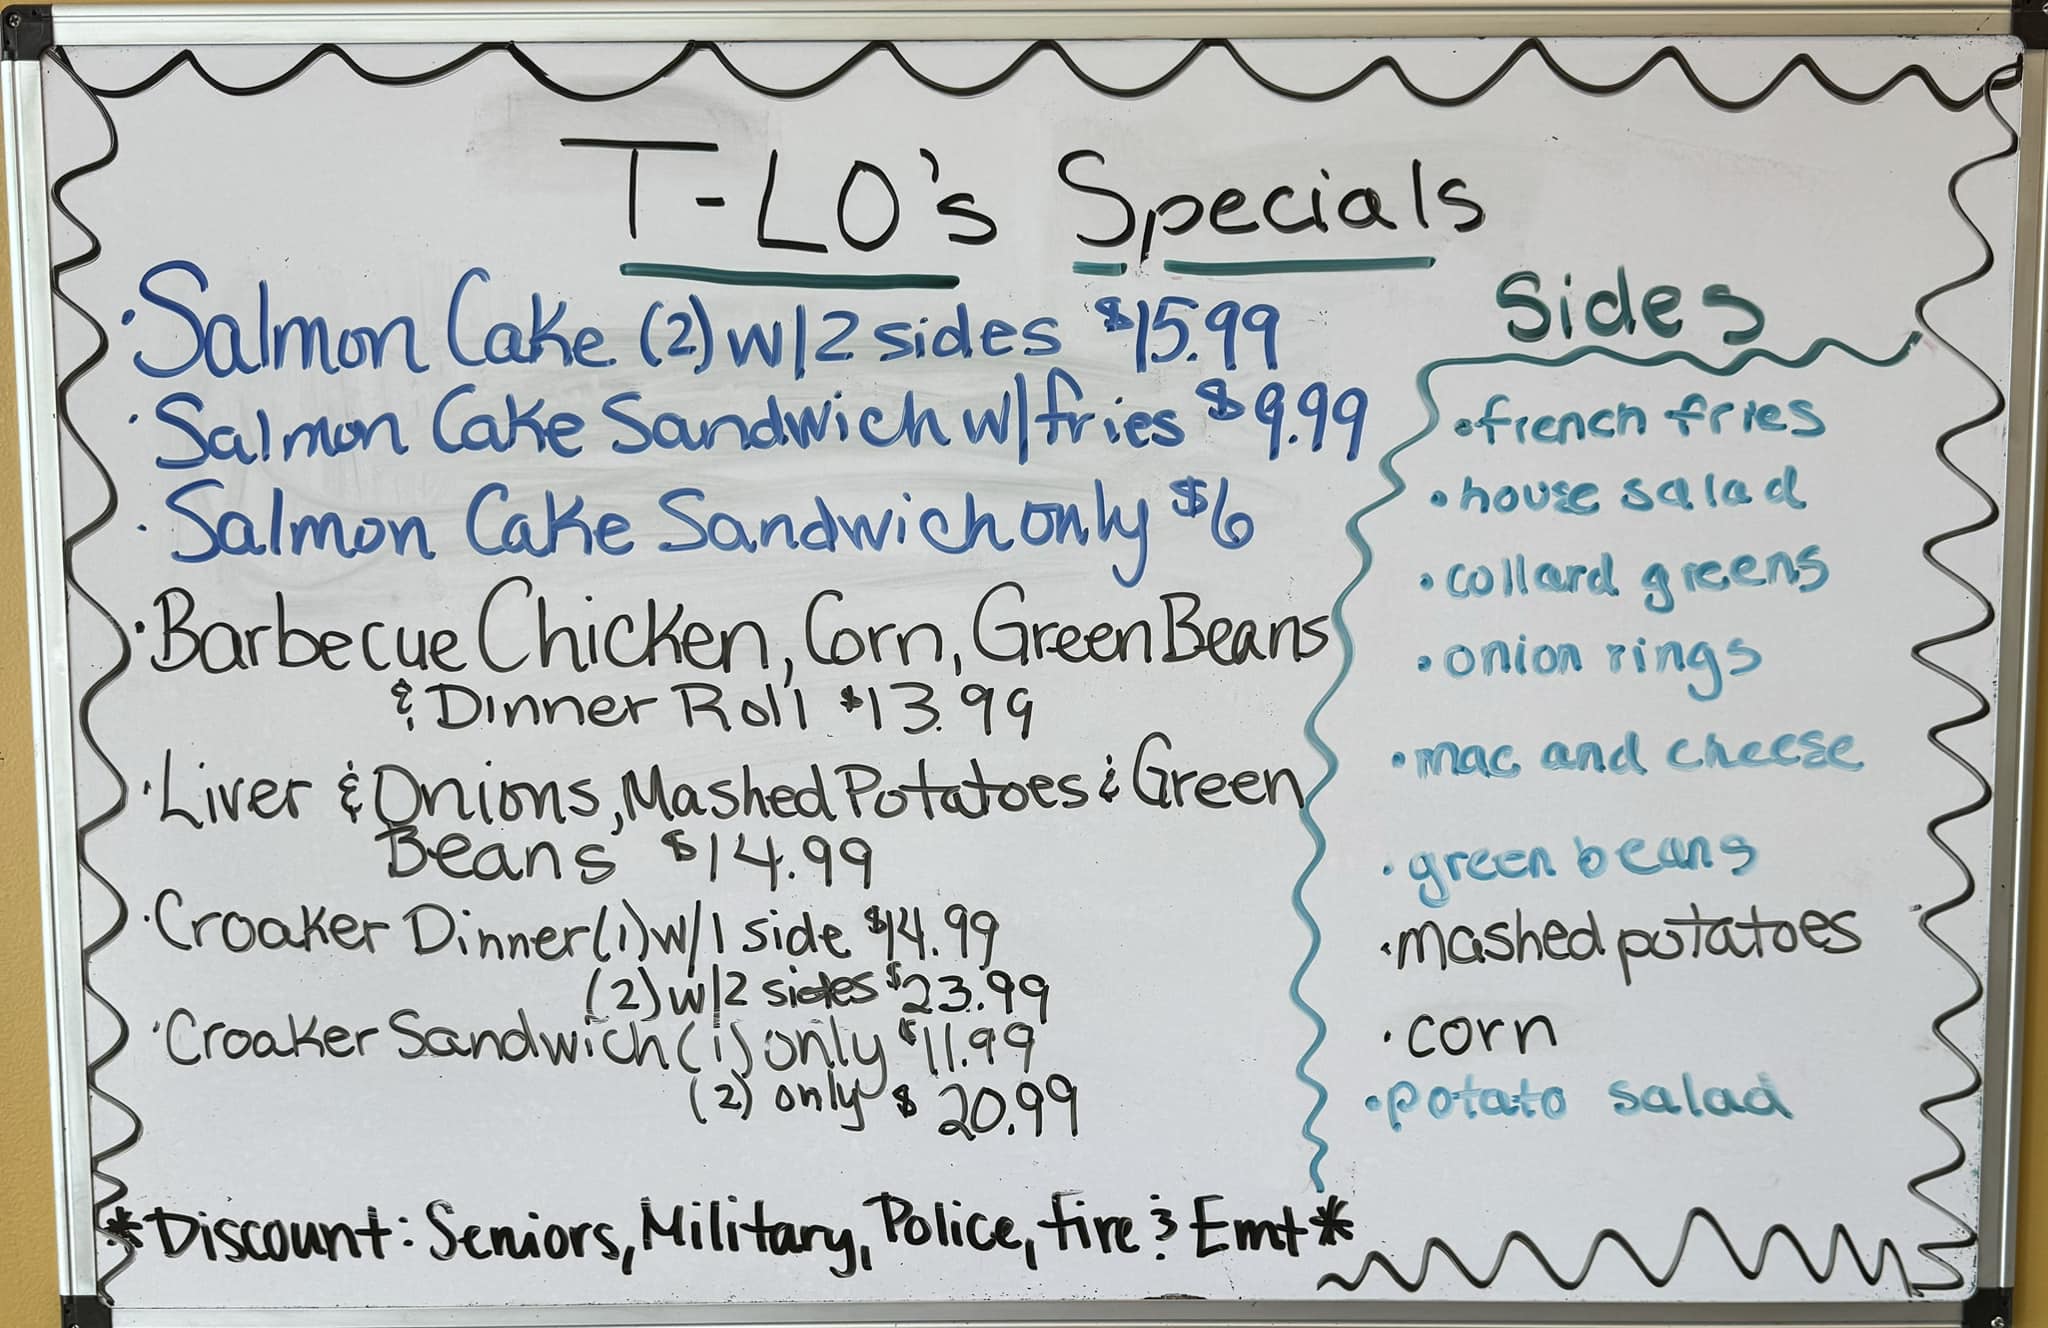 T-LO's Specials
• Salmon Cake (2) w/2 sides $15.99
• Salmon Cake Sandwich w/fries $9.99
• Salmon Cake Sandwich only $6
• Barbecue Chicken, Corn, Green Beans
& Dinner Roll $13.99
• Liver & Onions, Mashed Potatoes & Green
Beans $14.99
• Croaker Dinner (1) w/1 side $14.99
(2) w/2 sides $23.99
• Croaker Sandwich (1) only $11.99
(2) only $20.99
*Discount: Seniors, Military, Police, Fire & Emt*
Sides
• french fries
• house salad
• collard greens
• onion rings
• mac and cheese
• green beans
• mashed potatoes
• corn
• potato salad